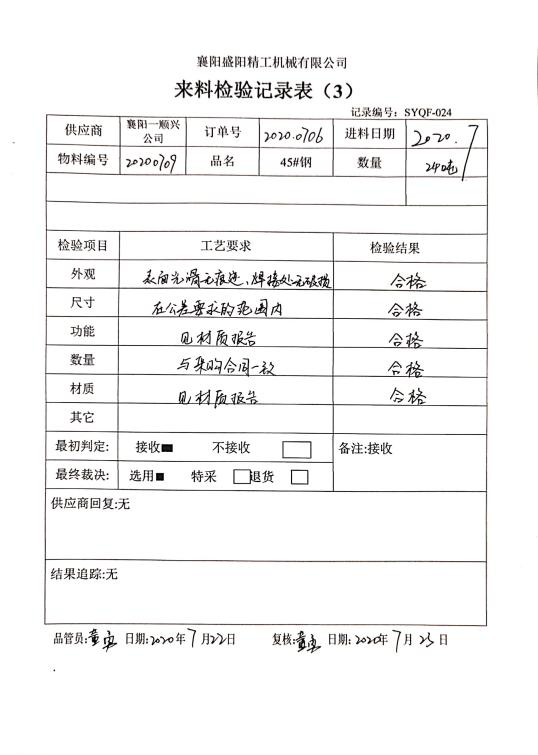 襄阳盛阳精工机械有限公司
来料检验记录表（3）
记录编号：SYQF-024
供应商 襄阳一顺兴公司 订单号 2020.0706 进料日期 2020.7
物料编号 20200709 品名 45#钢 数量 240吨
检验项目 工艺要求 检验结果
外观 表面光滑无痕迹、焊接处无破损 合格
尺寸 在公差要求的范围内 合格
功能 见材质报告 合格
数量 与采购合同一致 合格
材质 见材质报告 合格
其它
最初判定: 接收■ 不接收 □ 备注:接收
最终裁决: 选用■ 特采 □退货 □
供应商回复:无
结果追踪:无
品管员: 日期:2020年7月22日 复核: 日期:2020年7月23日